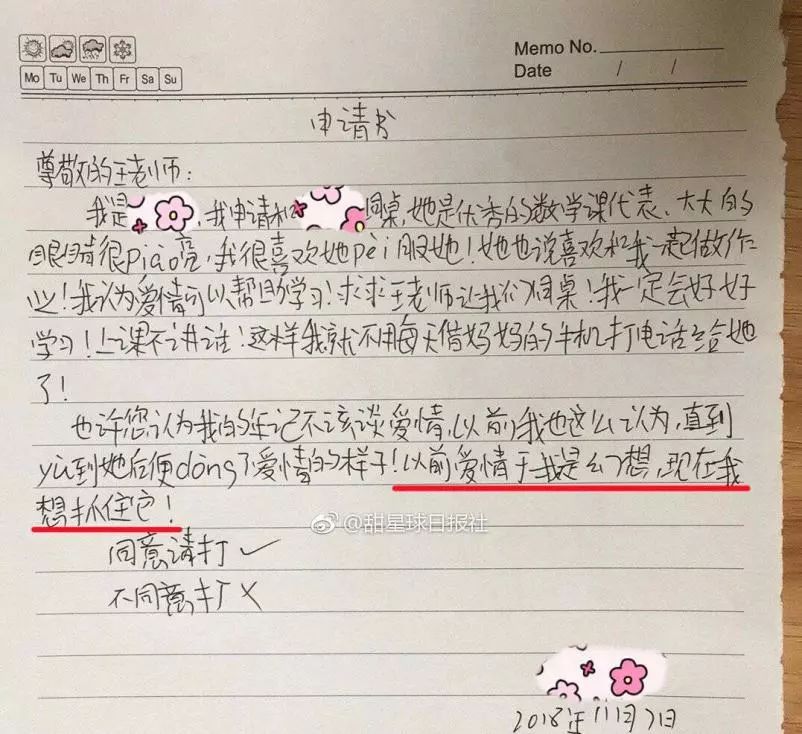 Memo No.
Date / /
Mo Tu We Th Fr Sa Su
申请书
尊敬的王老师：
我是，我申请和同桌，她是优秀的数学课代表、大大的
眼睛很piào亮，我很喜欢她pèi服她！她也说喜欢和我一起做作
业！我认为爱情可以帮助学习！求求王老师让我们同桌！我一定会好好
学习！上课不讲话！这样我就不用每天借妈妈的手机打电话给她
了！
也许您认为我的年记不该谈爱情，以前我也这么认为，直到
yù到她后便dǒng了爱情的样子！以前爱情于我是幻想，现在我
想抓住它！
@甜星球日报社
同意请打✓
不同意打×
2018年11月7日